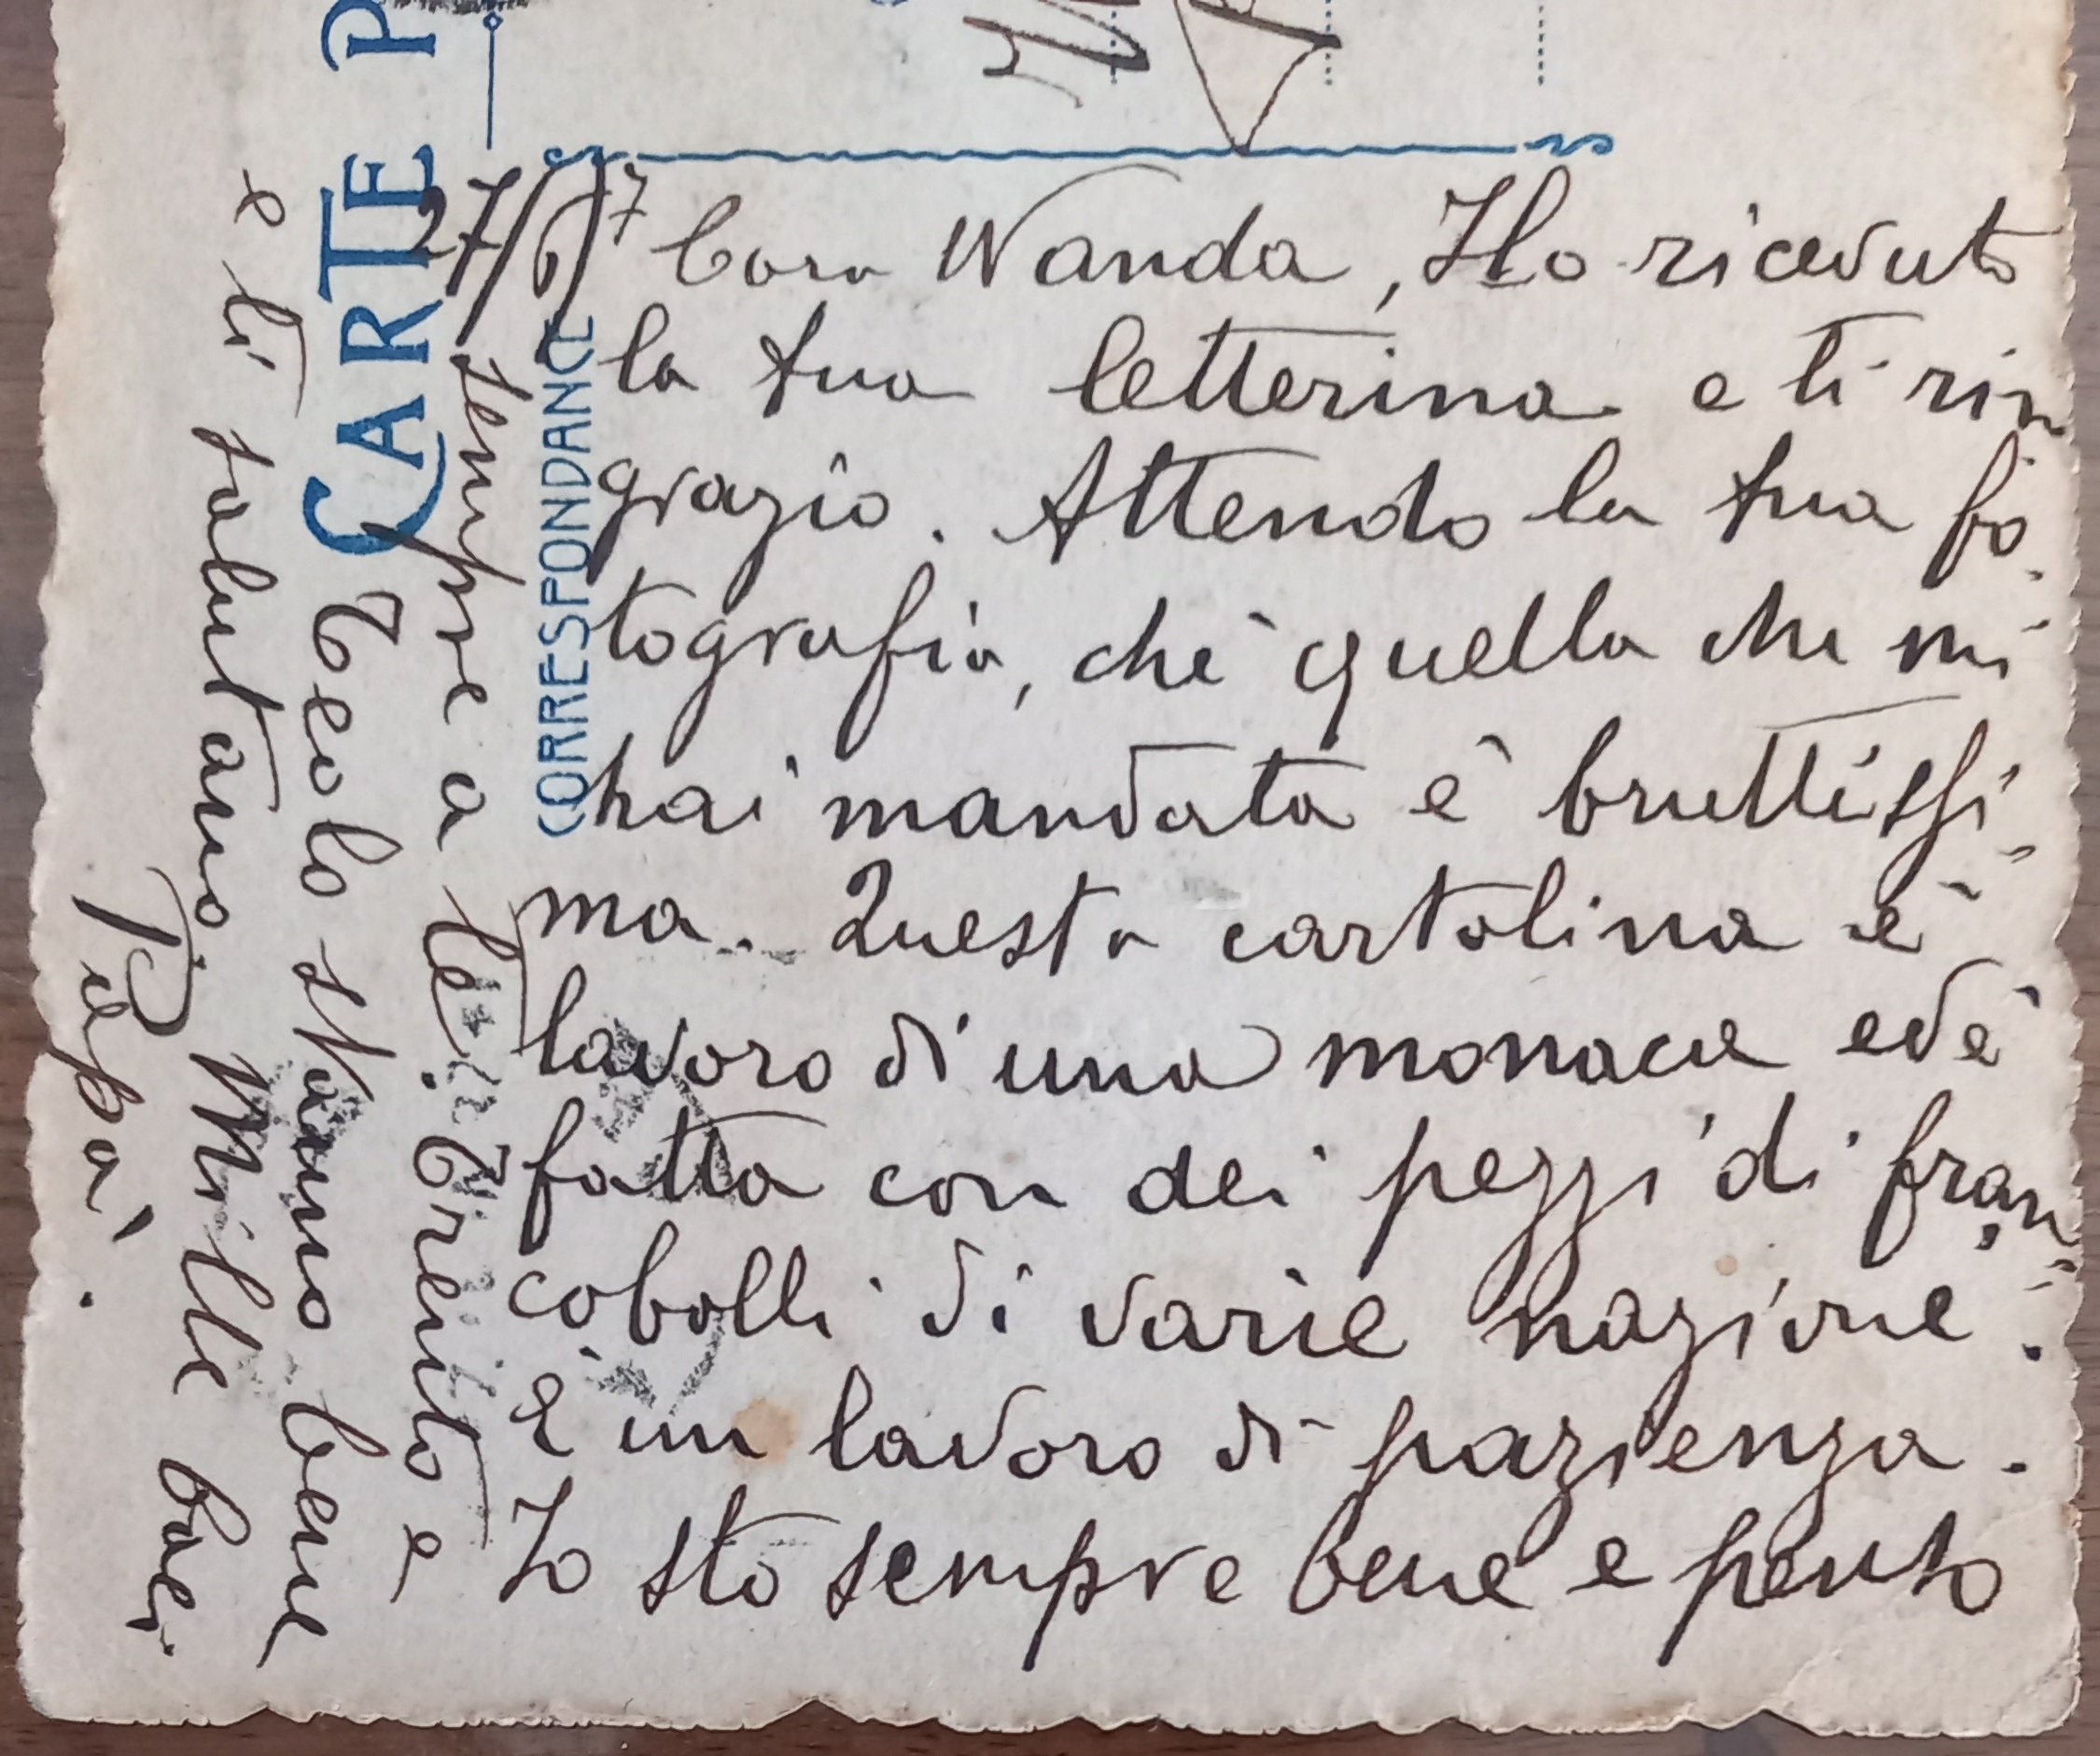 CARTE P
CORRESPONDANCE
27/6/7 Cara Wanda, Ho ricevuto
la tua letterina e ti rin
grazio. Attendo la tua fo
tografia, chè quella che mi
hai mandata è bruttissi-
ma. Questa cartolina è
lavoro di una monaca ed è
fatta con dei pezzi di fran
cobolli di varie nazione.
È un lavoro di pazienza.
Io sto sempre bene e penso
sempre a te. Trento e
Teolo stanno bene
e ti salutano. Mille baci
Papà.